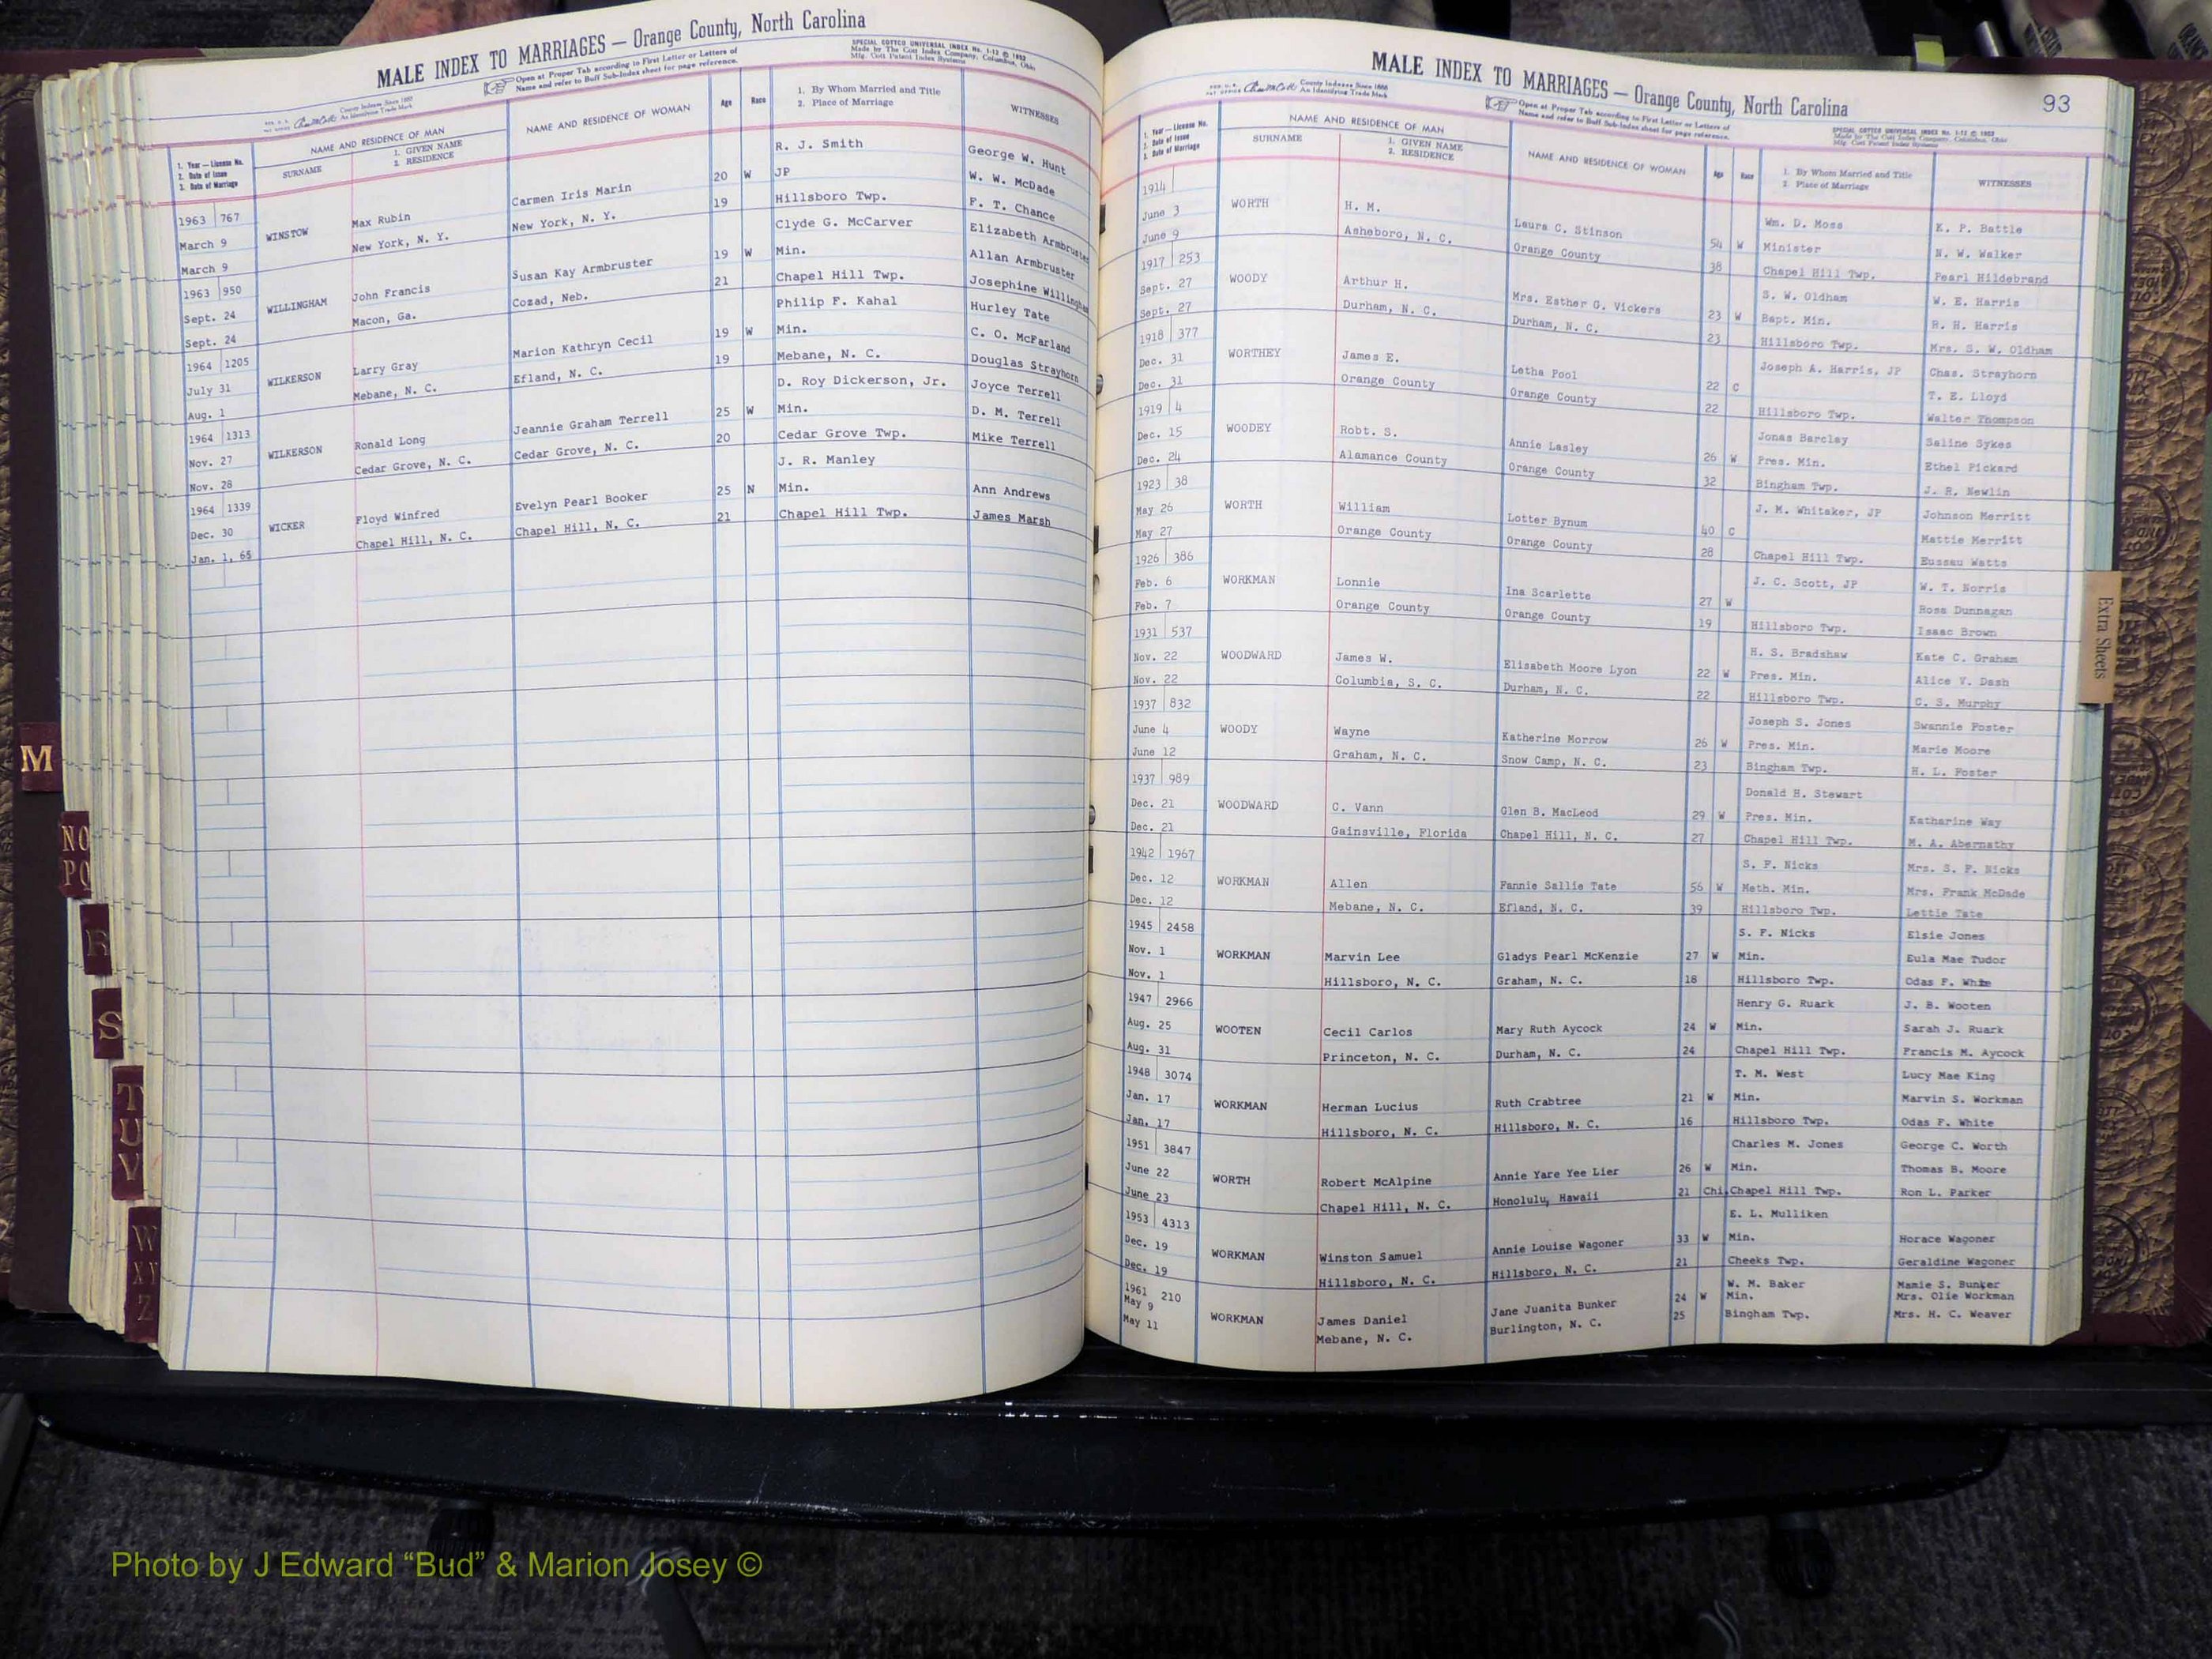 MALE INDEX TO MARRIAGES — Orange County, North Carolina
Open at Proper Tab according to First Letter or Letters of
Name and refer to Buff Sub-Index sheet for page reference.
SPECIAL COTTCO UNIVERSAL INDEX No. 1-12 © 1952
Made by The Cott Index Company, Columbus, Ohio
Mfg. Cott Patent Index Systems
County Indexes Since 1888
An Identifying Trade Mark
1. Year — License No.
2. Date of Issue
3. Date of Marriage
NAME AND RESIDENCE OF MAN
SURNAME
1. GIVEN NAME
2. RESIDENCE
NAME AND RESIDENCE OF WOMAN
Age
Race
1. By Whom Married and Title
2. Place of Marriage
WITNESSES
1963 767 WINSTOW Max Rubin Carmen Iris Marin 20 W R. J. Smith George W. Hunt
March 9 New York, N. Y. New York, N. Y. 19 JP W. W. McDade
March 9 Hillsboro Twp. F. T. Chance
1963 950 WILLINGHAM John Francis Susan Kay Armbruster 19 W Clyde G. McCarver Elizabeth Armbruster
Sept. 24 Macon, Ga. Cozad, Neb. 21 Min. Allan Armbruster
Sept. 24 Chapel Hill Twp. Josephine Willingham
1964 1205 WILKERSON Larry Gray Marion Kathryn Cecil 19 W Philip F. Kahal Hurley Tate
July 31 Mebane, N. C. Efland, N. C. 19 Min. C. O. McFarland
Aug. 1 Mebane, N. C. Douglas Strayhorn
1964 1313 WILKERSON Ronald Long Jeannie Graham Terrell 25 W D. Roy Dickerson, Jr. Joyce Terrell
Nov. 27 Cedar Grove, N. C. Cedar Grove, N. C. 20 Min. D. M. Terrell
Nov. 28 Cedar Grove Twp. Mike Terrell
1964 1339 WICKER Floyd Winfred Evelyn Pearl Booker 25 N J. R. Manley
Dec. 30 Chapel Hill, N. C. Chapel Hill, N. C. 21 Min. Ann Andrews
Jan. 1, 65 Chapel Hill Twp. James Marsh
M
NO
PQ
R
S
T
U
V
W
XY
Z
MALE INDEX TO MARRIAGES — Orange County, North Carolina
93
County Indexes Since 1888
An Identifying Trade Mark
Open at Proper Tab according to First Letter or Letters of
Name and refer to Buff Sub-Index sheet for page reference.
SPECIAL COTTCO UNIVERSAL INDEX No. 1-12 © 1952
Made by The Cott Index Company, Columbus, Ohio
Mfg. Cott Patent Index Systems
1. Year — License No.
2. Date of Issue
3. Date of Marriage
NAME AND RESIDENCE OF MAN
SURNAME
1. GIVEN NAME
2. RESIDENCE
NAME AND RESIDENCE OF WOMAN
Age
Race
1. By Whom Married and Title
2. Place of Marriage
WITNESSES
1914 WORTH H. M. Laura C. Stinson 54 W Wm. D. Moss K. P. Battle
June 3 Asheboro, N. C. Orange County 38 Minister N. W. Walker
June 9 Chapel Hill Twp. Pearl Hildebrand
1917 253 WOODY Arthur H. Mrs. Esther G. Vickers 23 W S. W. Oldham W. E. Harris
Sept. 27 Durham, N. C. Durham, N. C. 23 Bapt. Min. R. H. Harris
Sept. 27 Hillsboro Twp. Mrs. S. W. Oldham
1918 377 WORTHEY James E. Letha Pool 22 C Joseph A. Harris, JP Chas. Strayhorn
Dec. 31 Orange County Orange County 22 T. E. Lloyd
Dec. 31 Hillsboro Twp. Walter Thompson
1919 4 WOODEY Robt. S. Annie Lasley 26 W Jonas Barclay Saline Sykes
Dec. 15 Alamance County Orange County 32 Pres. Min. Ethel Pickard
Dec. 24 Bingham Twp. J. R. Newlin
1923 38 WORTH William Lotter Bynum 40 C J. M. Whitaker, JP Johnson Merritt
May 26 Orange County Orange County 28 Mattie Merritt
May 27 Chapel Hill Twp. Eussau Watts
1926 386 WORKMAN Lonnie Ina Scarlette 27 W J. C. Scott, JP W. T. Norris
Feb. 6 Orange County Orange County 19 Rosa Dunnagan
Feb. 7 Hillsboro Twp. Isaac Brown
1931 537 WOODWARD James W. Elisabeth Moore Lyon 22 W H. S. Bradshaw Kate C. Graham
Nov. 22 Columbia, S. C. Durham, N. C. 22 Pres. Min. Alice V. Dash
Nov. 22 Hillsboro Twp. C. S. Murphy
1937 832 WOODY Wayne Katherine Morrow 26 W Joseph S. Jones Swannie Foster
June 4 Graham, N. C. Snow Camp, N. C. 23 Pres. Min. Marie Moore
June 12 Bingham Twp. H. L. Foster
1937 989 WOODWARD C. Vann Glen B. MacLeod 29 W Donald H. Stewart
Dec. 21 Gainsville, Florida Chapel Hill, N. C. 27 Pres. Min. Katharine Way
Dec. 21 Chapel Hill Twp. M. A. Abernathy
1942 1967 WORKMAN Allen Fannie Sallie Tate 56 W S. F. Nicks Mrs. S. F. Nicks
Dec. 12 Mebane, N. C. Efland, N. C. 39 Meth. Min. Mrs. Frank McDade
Dec. 12 Hillsboro Twp. Lettie Tate
1945 2458 WORKMAN Marvin Lee Gladys Pearl McKenzie 27 W S. F. Nicks Elsie Jones
Nov. 1 Hillsboro, N. C. Graham, N. C. 18 Min. Eula Mae Tudor
Nov. 1 Hillsboro Twp. Odas F. White
1947 2966 WOOTEN Cecil Carlos Mary Ruth Aycock 24 W Henry G. Ruark J. B. Wooten
Aug. 25 Princeton, N. C. Durham, N. C. 24 Min. Sarah J. Ruark
Aug. 31 Chapel Hill Twp. Francis M. Aycock
1948 3074 WORKMAN Herman Lucius Ruth Crabtree 21 W T. M. West Lucy Mae King
Jan. 17 Hillsboro, N. C. Hillsboro, N. C. 16 Min. Marvin S. Workman
Jan. 17 Hillsboro Twp. Odas F. White
1951 3847 WORTH Robert McAlpine Annie Yare Yee Lier 26 W Charles M. Jones George C. Worth
June 22 Chapel Hill, N. C. Honolulu, Hawaii 21 Chi. Min. Thomas B. Moore
June 23 Chapel Hill Twp. Ron L. Parker
1953 4313 WORKMAN Winston Samuel Annie Louise Wagoner 33 W E. L. Mulliken
Dec. 19 Hillsboro, N. C. Hillsboro, N. C. 21 Min. Horace Wagoner
Dec. 19 Cheeks Twp. Geraldine Wagoner
1961 210 WORKMAN James Daniel Jane Juanita Bunker 24 W W. M. Baker Mamie S. Bunker
May 9 Mebane, N. C. Burlington, N. C. 25 Min. Mrs. Olie Workman
May 11 Bingham Twp. Mrs. H. C. Weaver
Extra Sheets
Photo by J Edward “Bud” & Marion Josey ©